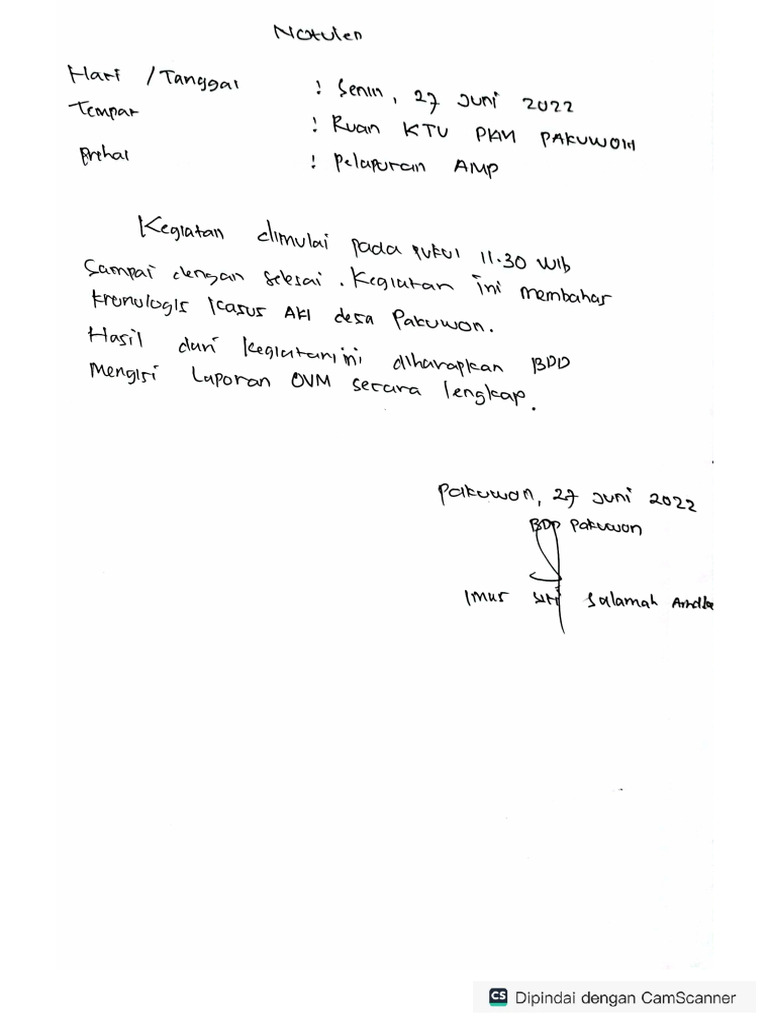 Notulen
Hari / Tanggal : Senin, 27 Juni 2022
Tempat : Ruan KTU PKM PAKUWON
Prihal : Pelapuran AMP
Kegiatan dimulai pada pukul 11.30 WIB
Sampai dengan selesai. Kegiatan ini membahas
kronologis kasus AKI desa Pakuwon.
Hasil dari kegiatan ini diharapkan BDD
Mengisi Laporan OVM secara lengkap.
Pakuwon, 27 Juni 2022
BDD Pakuwon
Imus Siti Salamah
CS Dipindai dengan CamScanner